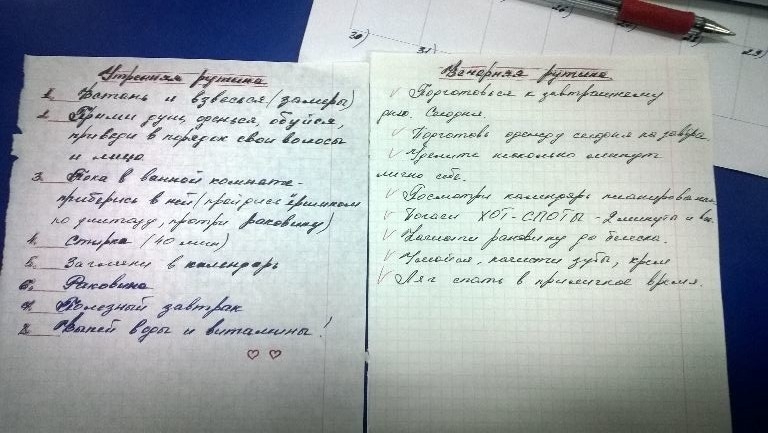 30)
31)
29)
Утренняя рутина
1. Встань и взвесься (замеры)
2. Прими душ, оденься, обуйся,
приведи в порядок свои волосы
и лицо
3. Пока в ванной комнате -
приберись в ней (пройдись ёршиком
по унитазу, протри раковину)
4. Стирка (40 мин)
5. Загляни в календарь
6. Раковина
7. Полезный завтрак
8. Выпей воды и витамины!
Вечерняя рутина
Подготовься к завтрашнему
дню. Сегодня.
Подготовь одежду сегодня на завтра
Уделите несколько минут
лично себе.
Посмотри календарь планирования
Погаси ХОТ-СПОТЫ - 2 минуты и все.
Начисти раковину до блеска.
Умойся, почисти зубы, крем
Ляг спать в приличное время.